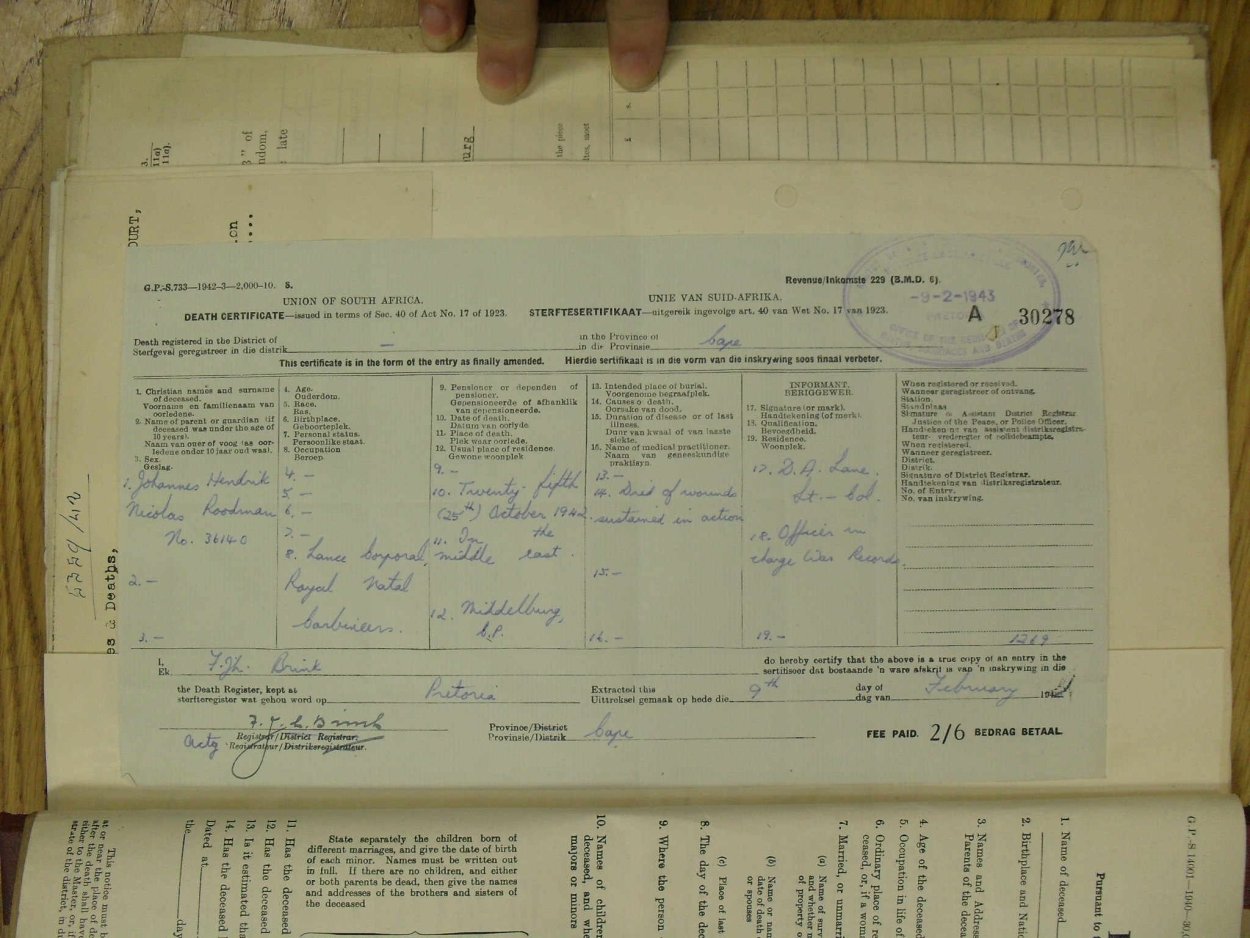 3.
11a)
11a).
3" of
ndom.
late
urg
the piece
ites, meet
OURT,
on
5359/42
es & Deaths,
G.P.-S.733—1942-3—2,000-10. 5.
Revenue/Inkomste 229 (B.M.D. 6).
-9-2-1943
UNION OF SOUTH AFRICA.
UNIE VAN SUID-AFRIKA.
DEATH CERTIFICATE—issued in terms of Sec. 40 of Act No. 17 of 1923.
STERFTESERTIFIKAAT—uitgereik ingevolge art. 40 van Wet No. 17 van 1923.
A 30278
Death registered in the District of
Sterfgeval geregistreer in die distrik —
in the Province of
in die Provinsie Cape
This certificate is in the form of the entry as finally amended. Hierdie sertifikaat is in die vorm van die inskrywing soos finaal verbeter.
1. Christian names and surname
of deceased.
Voorname en familienaam van
oorledene.
2. Name of parent or guardian (if
deceased was under the age of
10 years).
Naam van ouer of voog (as oor-
ledene onder 10 jaar oud was).
3. Sex.
Geslag.
1. Johannes Hendrik
Nicolas Roodman
No. 36140
2. —
3. —
4. Age.
Ouderdom.
5. Race.
Ras.
6. Birthplace.
Geboorteplek.
7. Personal status.
Persoonlike staat.
8. Occupation
Beroep.
4. —
5 —
6. —
7. —
8. Lance Corporal,
Royal Natal
Carbineers.
9. Pensioner or dependen of
pensioner.
Gepensioneerde of afhanklik
van gepensioneerde.
10. Date of death.
Datum van oorlyde.
11. Place of death.
Plek waar oorlede.
12. Usual place of residence.
Gewone woonplek
9. —
10. Twenty fifth
(25th) October 1942.
11. In the
middle east.
12. Middelburg,
C.P.
13. Intended place of burial.
Voorgenome begraafplek.
14. Causes o death.
Oorsake van dood.
15. Duration of disease or of last
illness.
Duur van kwaal of van laaste
siekte.
16. Name of medical practitioner.
Naam van geneeskundige
praktisyn.
13. —
14. Died of wounds
sustained in action
15. —
16. —
INFORMANT.
BERIGGEWER.
17. Signature (or mark).
Handtekening (of merk).
18. Qualification.
Bevoegdheid.
19. Residence.
Woonplek.
17. D. A. Lane.
Lt. — Col.
18. Officer in
charge War Records.
19. —
When registered or received.
Wanneer geregistreer of ontvang.
Station.
Standplaas
Signature o Assistant District Registrar
Justice of the Peace, or Police Officer.
Handtekening van assistent distriksregistra-
teur vrederegter of polisiebeampte.
When registered.
Wanneer geregistreer.
District.
Distrik.
Signature of District Registrar.
Handtekening van distriksregistrateur.
No. of Entry.
No. van inskrywing.
1269
I,
Ek F. Jh. Brink
do hereby certify that the above is a true copy of an entry in the
sertifiseer dat bostaande 'n ware afskrif is van 'n inskrywing in die
the Death Register, kept at
sterfteregister wat gehou word op Pretoria
Extracted this
Uittreksel gemaak op hede die 9th
day of
dag van February 194
Actg Registrar/District Registrar.
Registrateur/Distriksregistrateur.
Province/District
Provinsie/Distrik Cape
FEE PAID. 2/6 BEDRAG BETAAL.
G P.-S 14001—1940-
Pursuant to
1. Name of deceased
2. Birthplace and Natio
3. Names and Address
Parents of the decea
4. Age of the deceased
5. Occupation in life of
6. Ordinary place of re
ceased; or, if a wom
7. Married, or unmarri
(a) Name of surv
and whether m
of property o
(b) Name or nam
date of death
or spouses
(c) Place of last
8. The day of the dec
9. Where the person
10. Names of children
deceased, and whe
majors or minors
State separately the children born of
different marriages, and give the date of birth
of each minor. Names must be written out
in full. If there are no children, and either
or both parents be dead, then give the names
and addresses of the brothers and sisters of
the deceased
11. Has the deceased
12. Has the deceased
13. Is it estimated tha
14. Has the deceased
Dated at
the day
This notice must b
at or near the place of de
after the death shall hav
either to the Master, or, if
strate of the district, in du